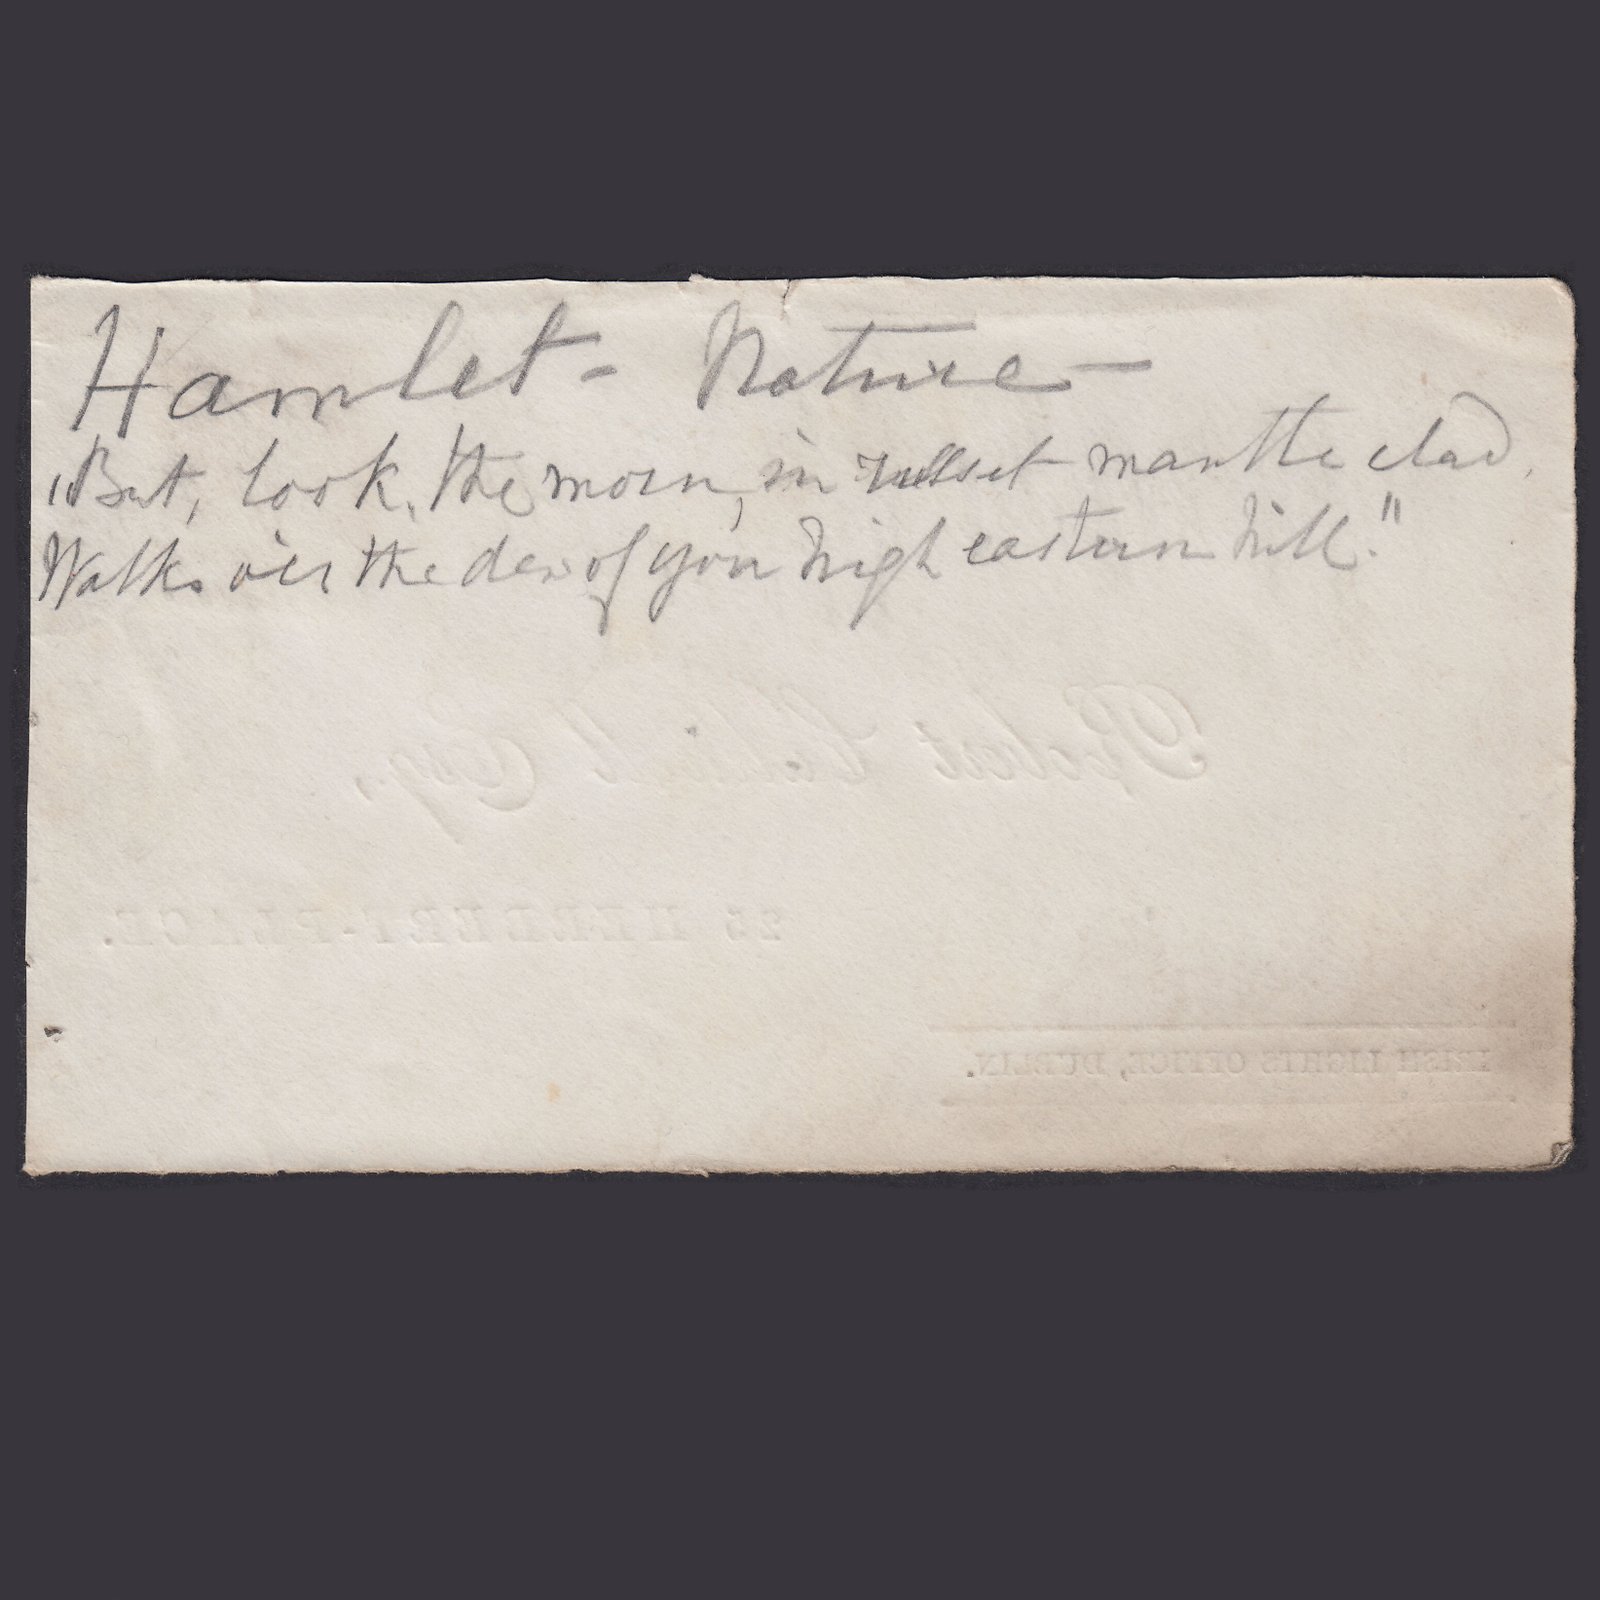 Hamlet - Nature -
"But, look, the morn, in russet mantle clad,
Walks o'er the dew of yon high eastern hill."
Robert Esq.,
25 HERBERT-PLACE.
IRISH LIGHTS OFFICE, DUBLIN.